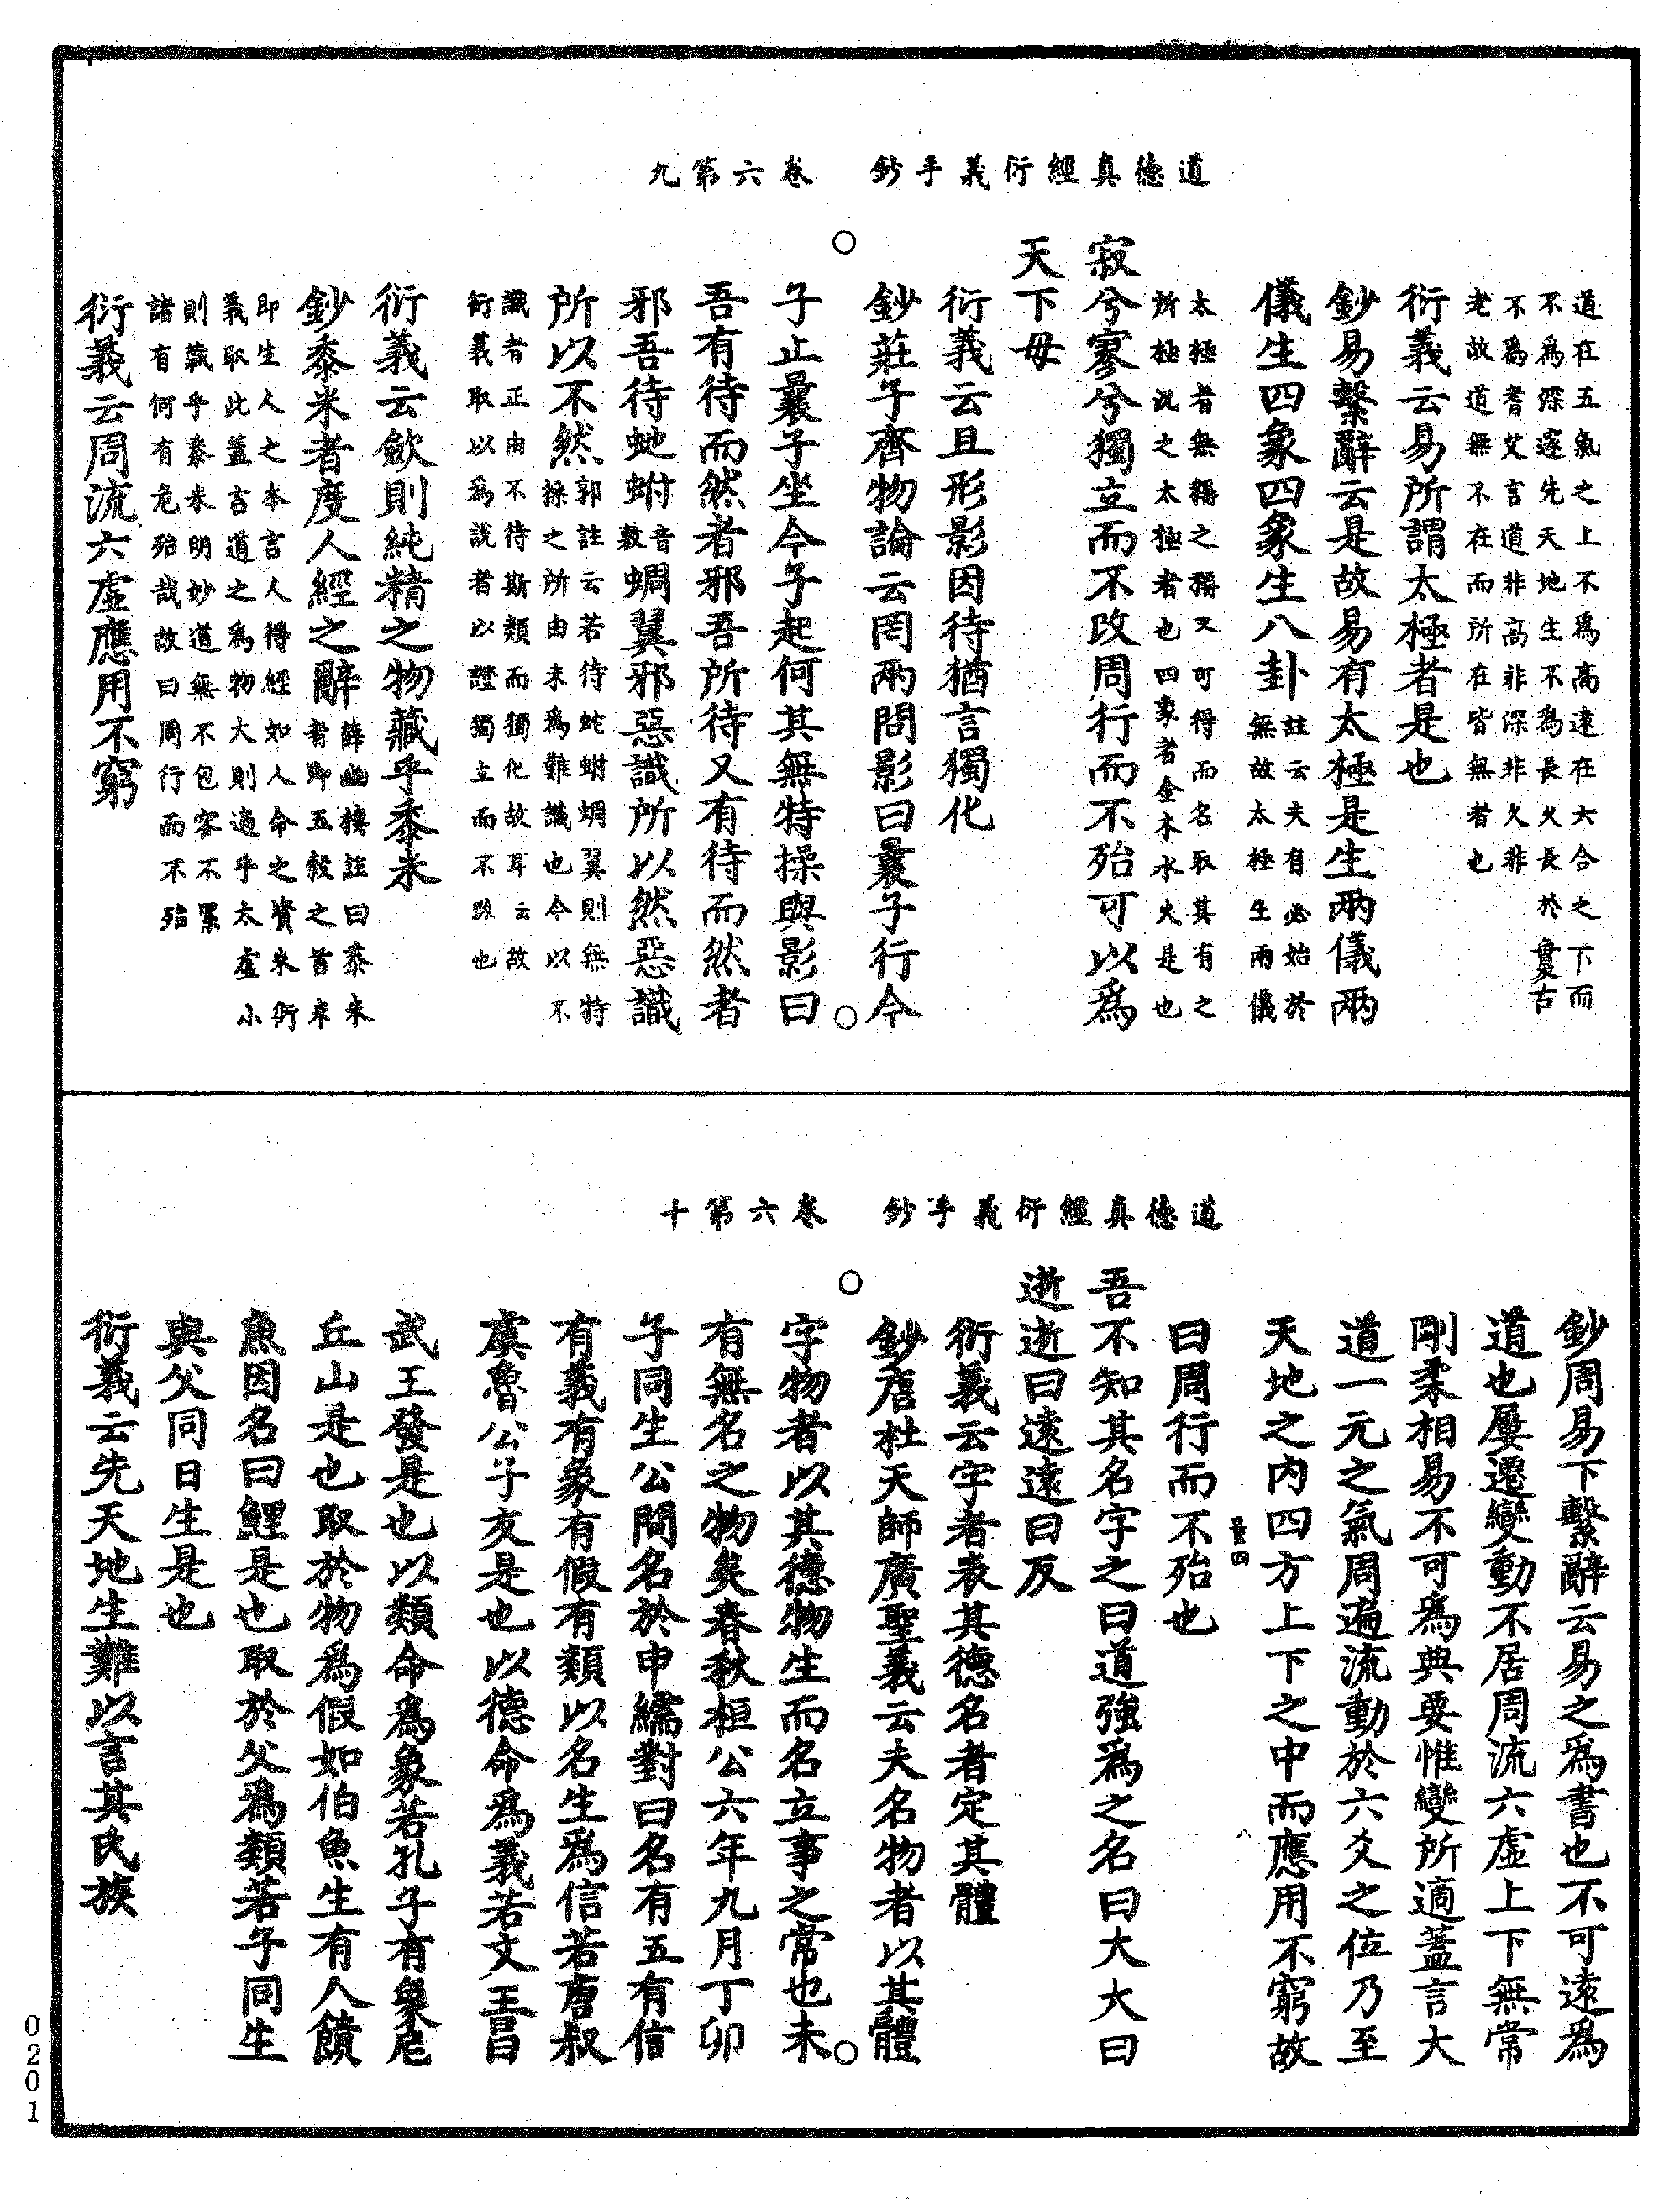 道德真經衍義手鈔　卷六第九
道在五氣之上不爲高遠在六合之下而
不爲深邃先天地生不爲長久長於敻古
不爲耆艾言道非高非深非久非
老故道無不在而所在皆無者也
衍義云易所謂太極者是也
鈔易繫辭云是故易有太極是生兩儀兩
儀生四象四象生八卦註云夫有必始於
無故太極生兩儀
太極者無稱之稱不可得而名取其有之
所極況之太極者也四象者金木水火是也
寂兮寥兮獨立而不改周行而不殆可以爲
天下母
衍義云且形影因待猶言獨化
鈔莊子齊物論云罔兩問影曰曩子行今
子止曩子坐今子起何其無特操與影曰
吾有待而然者邪吾所待又有待而然者
邪吾待虵蚹音敷蜩翼邪惡識所以然惡識
所以不然郭註云若待蛇蚹蜩翼則無特
操之所由未爲難識也今以不
識者正由不待斯類而獨化故耳云故
衍義取以爲說者以證獨立而不改也
衍義云歛則純精之物藏乎黍米
鈔黍米者度人經之辭薛幽棲註曰黍米
者即五穀之首米
即生人之本言人得經如人命之資米衍
義取此蓋言道之爲物大則過乎太虛小
則藏乎黍米明妙道無不包容不累
諸有何有危殆哉故曰周行而不殆
衍義云周流六虛應用不窮
道德真經衍義手鈔　卷六第十
鈔周易下繫辭云易之爲書也不可遠爲
道也屢遷變動不居周流六虛上下無常
剛柔相易不可爲典要惟變所適蓋言大
道一元之氣周遍流動於六爻之位乃至
天地之內四方上下之中而應用不窮故
曰周行而不殆也
吾不知其名字之曰道強爲之名曰大大曰
逝逝曰遠遠曰反
衍義云字者表其德名者定其體
鈔唐杜天師廣聖義云夫名物者以其體
字物者以其德物生而名立事之常也未
有無名之物矣春秋桓公六年九月丁卯
子同生公問名於申繻對曰名有五有信
有義有象有假有類以名生爲信若唐叔
虞魯公子友是也以德命爲義若文王昌
武王發是也以類命爲象若孔子有象尼
丘山是也取於物爲假如伯魚生有人饋
魚因名曰鯉是也取於父爲類若子同生
與父同日生是也
衍義云先天地生難以言其氏族
0201